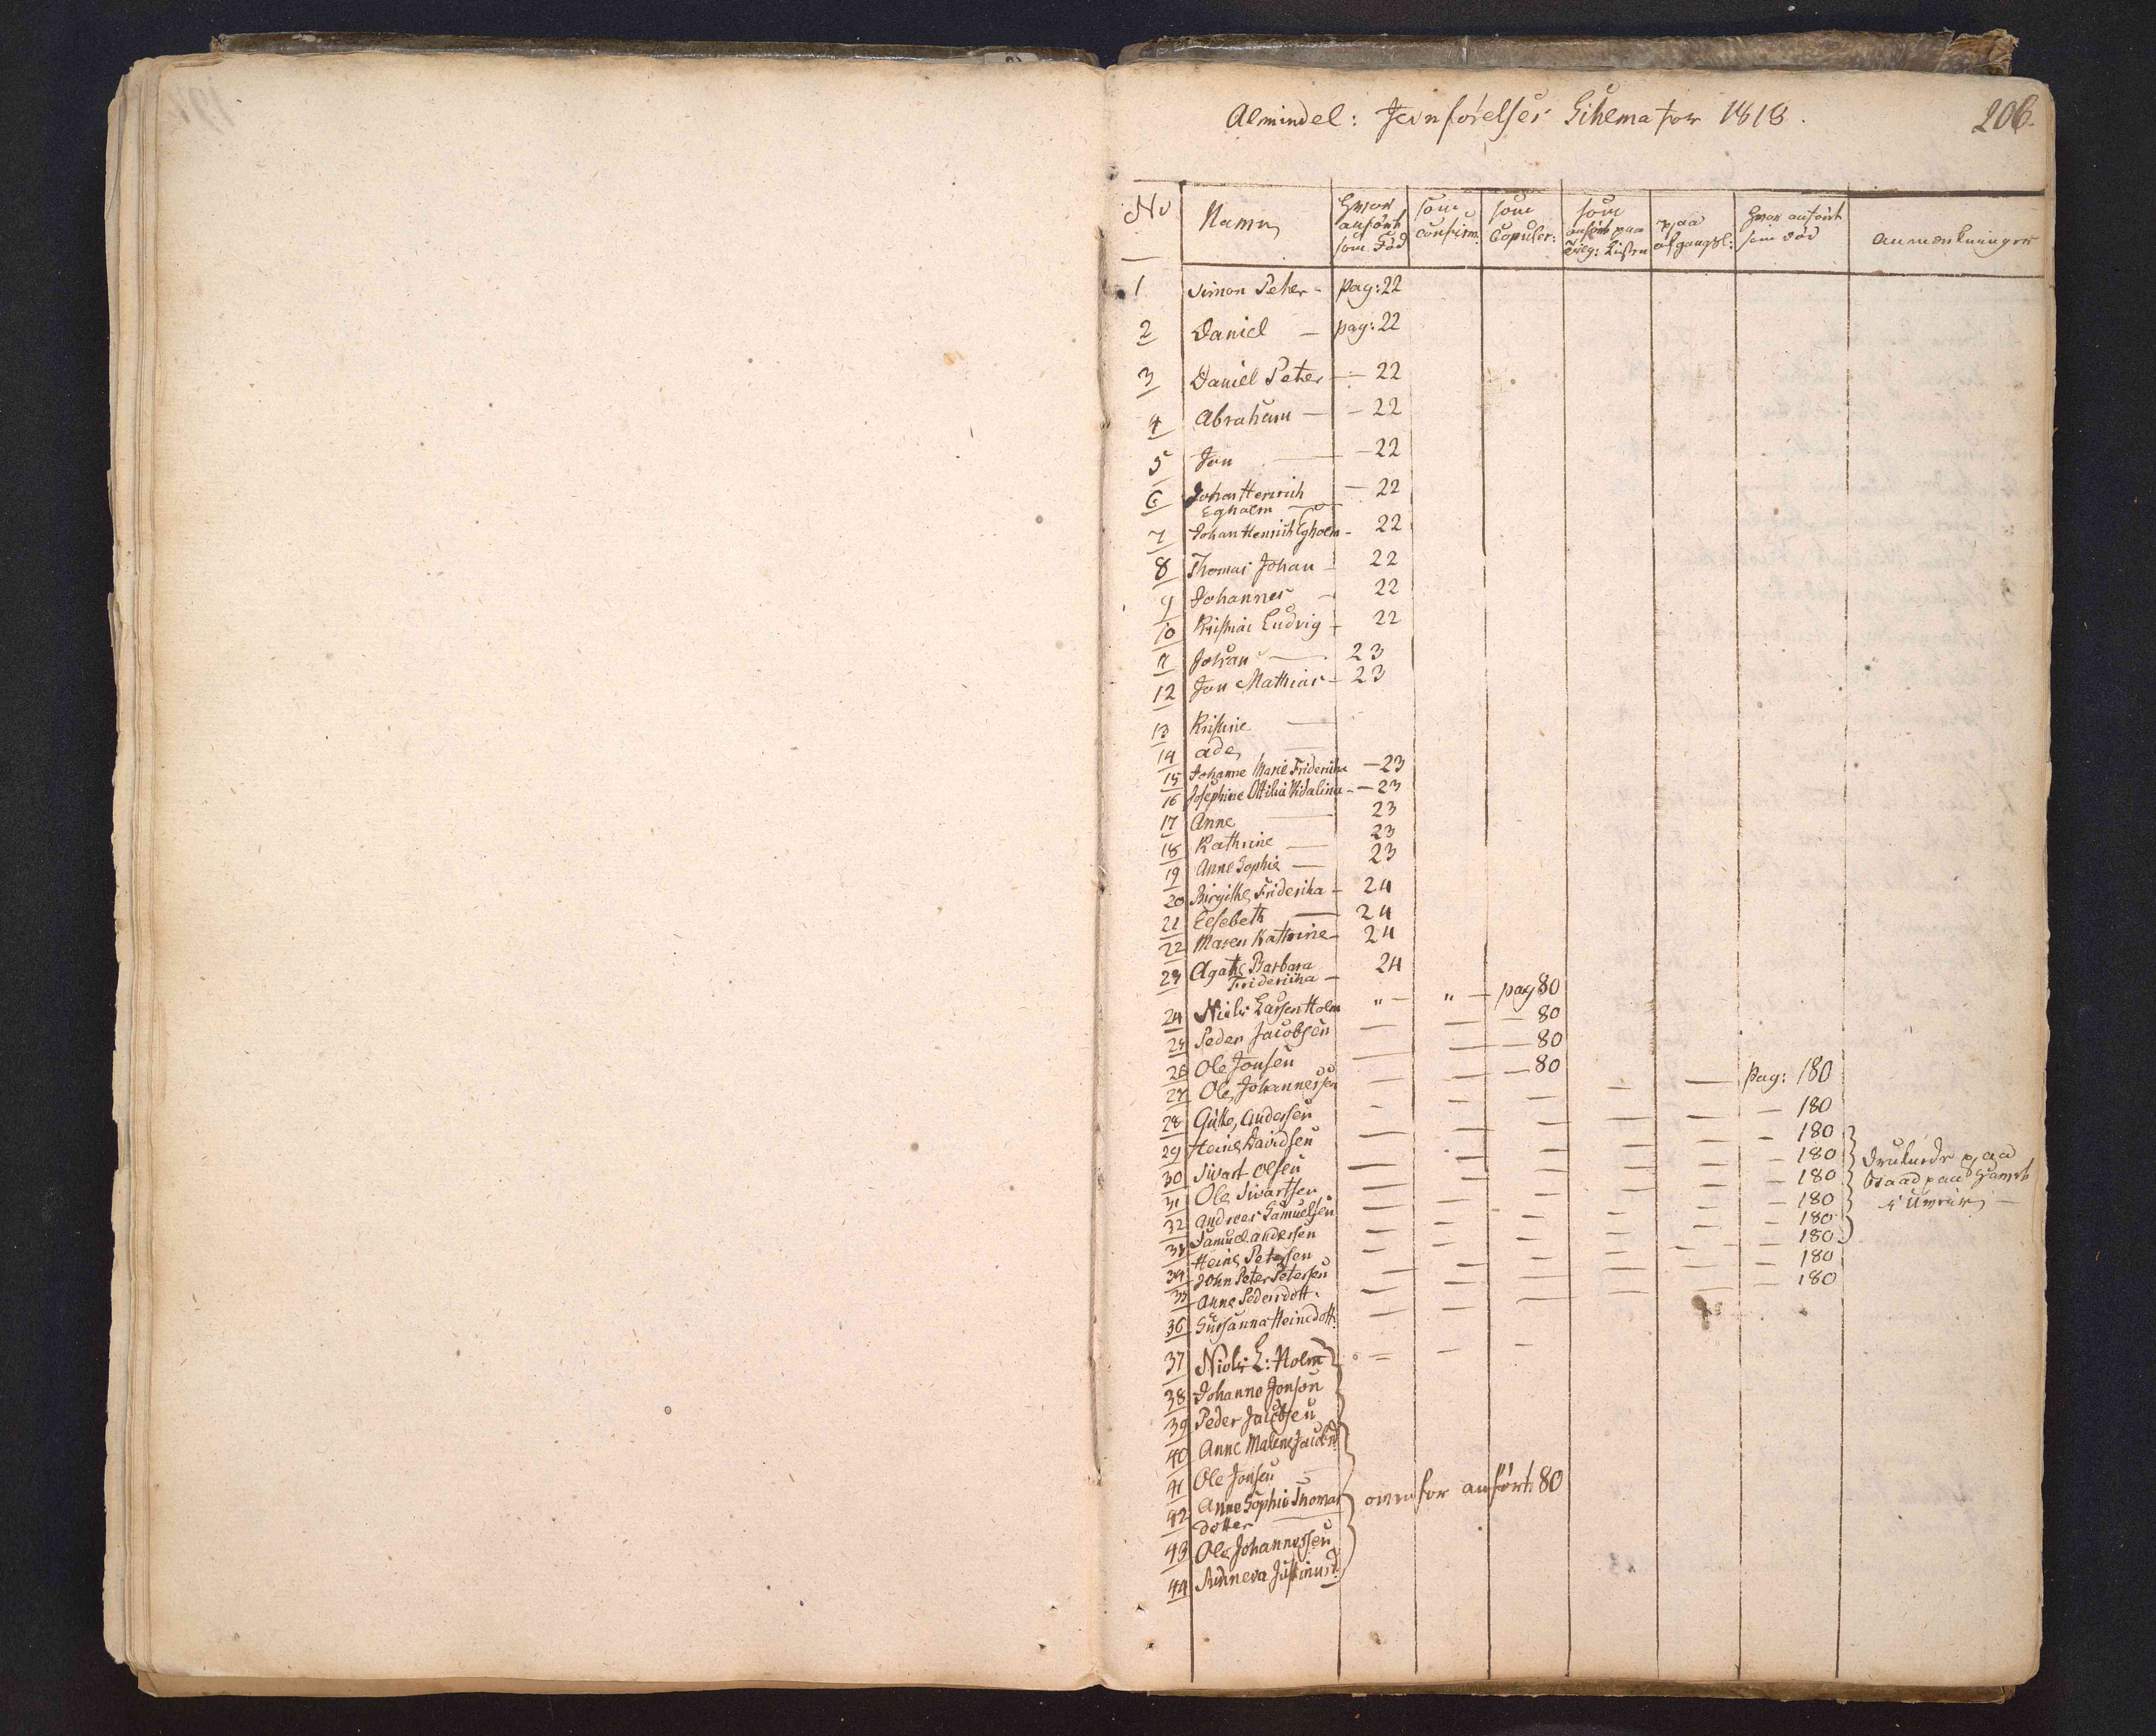 Almindel: Jevnførelses Schema for 1818.
206.
No
Navne
Hvor anført som Fød
som confirm.
som Copuler:
som anført paa Tilg: Listen
paa afgangsl:
Hvor anført som død
Anmærkninger
1 Simon Peter - pag: 22
2 Daniel - pag: 22
3 Daniel Peter - 22
4 Abraham - 22
5 Jon - 22
6 Johan Henrich - 22
Egholm
7 Johan Henrich Egholm - 22
8 Thomas Johan - 22
9 Johannes - 22
10 Kristian Ludvig - 22
11 Johan - 23
12 Jon Mathias - 23
13 Kristine -
14 Ade -
15 Johanne Marie Friderikka - 23
16 Josephine Ottilia Vidalina - 23
17 Anne - 23
18 Kathrine - 23
19 Anne Sophie - 23
20 Birgithe Friderika - 24
21 Elsebeth - 24
22 Maren Kathrine - 24
23 Agathe Barbara 24
Fridericha -
24 Niels Larsen Holm " - " - pag 80
25 Peder Jacobsen - - - 80
26 Ole Jonsen - - - 80
27 Ole Johannessen - - - 80
28 Gutte Andersen - - - - - pag: 180
29 Heine Davidsen - - - - - 180
30 Sivart Olsen - - - - - 180
31 Ole Sivartsen - - - - - 180
32 Andreas Samuelsen - - - - - 180
33 Samuel Andersen - - - - - 180
34 Heine Petersen - - - - - 180
35 John Peter Petersen - - - - - 180
Anne Pedersdott. - - - - - 180
36 Susanna Heinedott: - - - - - 180
Druknede paa
Baad paa Havet
i Uveir -
37 Niels L: Holm - - -
38 Johanne Jonsen
39 Peder Jacobsen
40 Anne Malene Jacobsd.
41 Ole Jonsen
42 Anne Sophie Thomas
dotter
ovenfor anført 80
43 Ole Johannessen
44 Sunneva Justinusd.